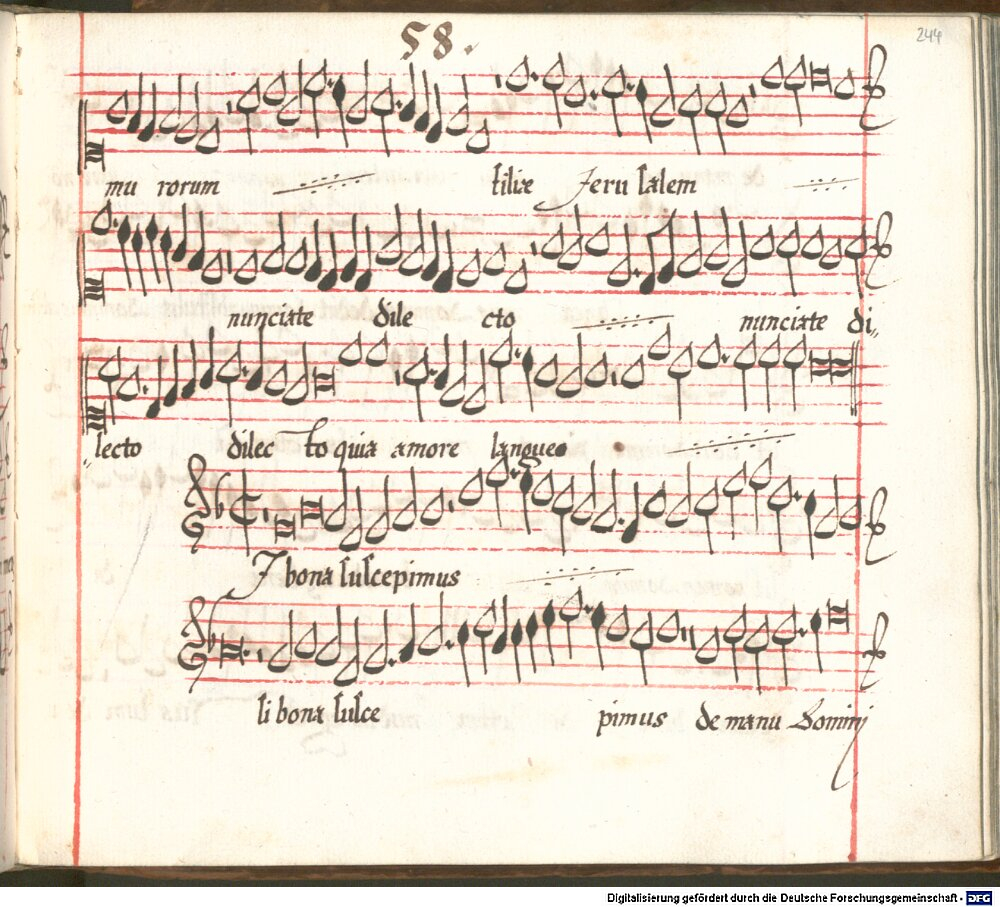 58.
244
mu rorum filiæ Jeru salem
nunciate dile cto nunciate di„
„lecto dilec to quia amore langueo
I bona suscepimus
si bona susce pimus de manu Domini
Digitalisierung gefördert durch die Deutsche Forschungsgemeinschaft - DFG